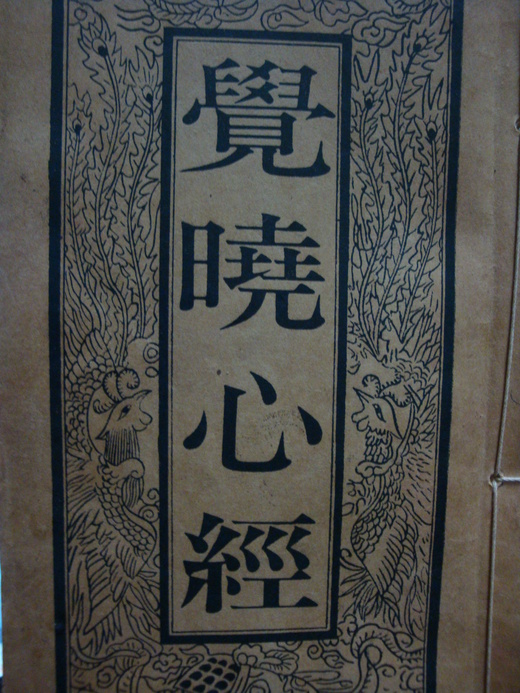 覺曉心經